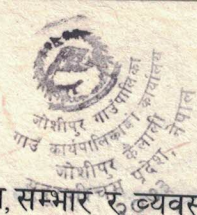 जोशीपुर गाउँपालिका
गाउँ कार्यपालिकाको कार्यालय
जोशीपुर कैलाली
प्रदेश, नेपाल
, सम्भार र व्यवस